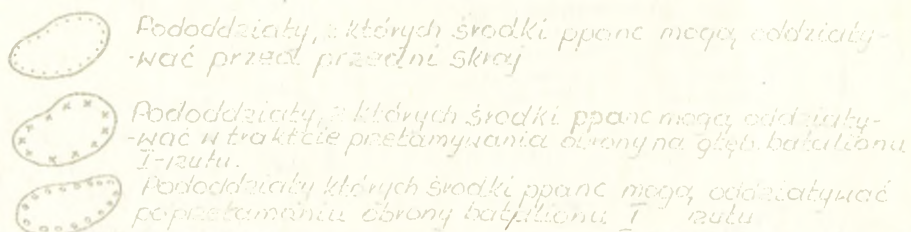 Pododdziały, z których środki ppanc mogą oddziały-
-wać przed przedni skraj
Pododdziały, z których środki ppanc mogą oddziały-
-wać w trakcie przełamywania obrony na głęb. batalionu
I-rzutu.
Pododdziały których środki ppanc mogą oddziaływać
po przełamaniu obrony batalionu I rzutu